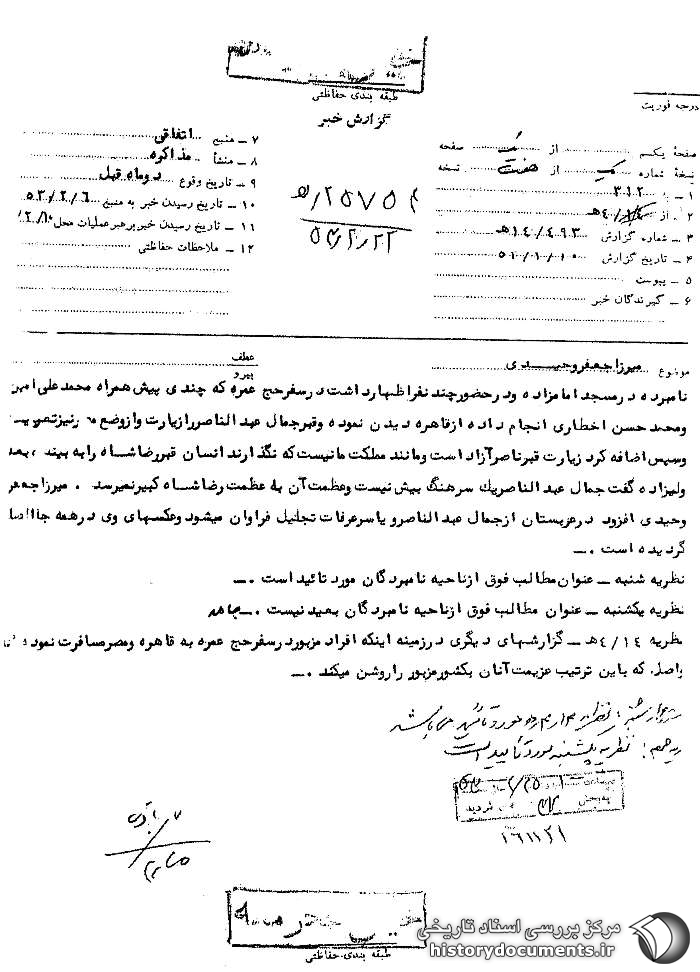 طبقه بندی حفاظتی
گزارش خبر
درجه فوریت
صفحه یکم از صفحه
نسخه شماره یک از هفت نسخه
۱ – به ۳۱۲
۲ – از ۴/۱۴هـ
۳ – شماره گزارش ۱۴/۴۹۳هـ
۴ – تاریخ گزارش
۵ – پیوست
۶ – گیرندگان خبر
۷ – منبع اتفاقی
۸ – منشأ مذاکره
۹ – تاریخ وقوع دوماه قبل
۱۰ – تاریخ رسیدن خبر به منبع ۵۳/۲/۶
۱۱ – تاریخ رسیدن خبر برهبر عملیات محل
۱۲ – ملاحظات حفاظتی
۲۵۷۵۴/هـ
۵۳/۲/۲۲
موضوع میرزاجعفروحیدی
عطف
پیرو
نامبرده درمسجد امامزاده ودرحضورچند نفراظهارداشت درسفرحج عمره که چندی پیش همراه محمدعلی امین
ومحمد حسن اخطاری انجام داده ازقاهره دیدن نموده وقبرجمال عبدالناصررازیارت وازوضع نیزتعریف
وسپس اضافه کرد زیارت قبرناصرآزاد است ومانند مملکت مانیست که نگذارند انسان قبررضاشاه رابه بیند ، بعد
ولیزاده گفت جمال عبدالناصریک سرهنگ بیش نیست وعظمت آن به عظمت رضاشاه کبیرنمیرسد . میرزاجعفر
وحیدی افزود درعربستان ازجمال عبدالناصرو یاسرعرفات تجلیل فراوان میشود وعکسهای وی درهمه جا
گردیده است .–
نظریه شنبه – عنوان مطالب فوق ازناحیه نامبردگان مورد تائید است .–
نظریه یکشنبه – عنوان مطالب فوق ازناحیه نامبردگان بعید نیست .–
نظریه ۴/۱۴هـ – گزارشهای دیگری درزمینه اینکه افراد مزبوردرسفرحج عمره به قاهره ومصرمسافرت نموده
واصل که باین ترتیب عزیمت آنان بکشورمزبور را روشن میکند .–
نظریه یکشنبه مورد تایید است
به بخش ۳۱۲ گردید
طبقه بندی حفاظتی
مرکز بررسی اسناد تاریخی
historydocuments.ir